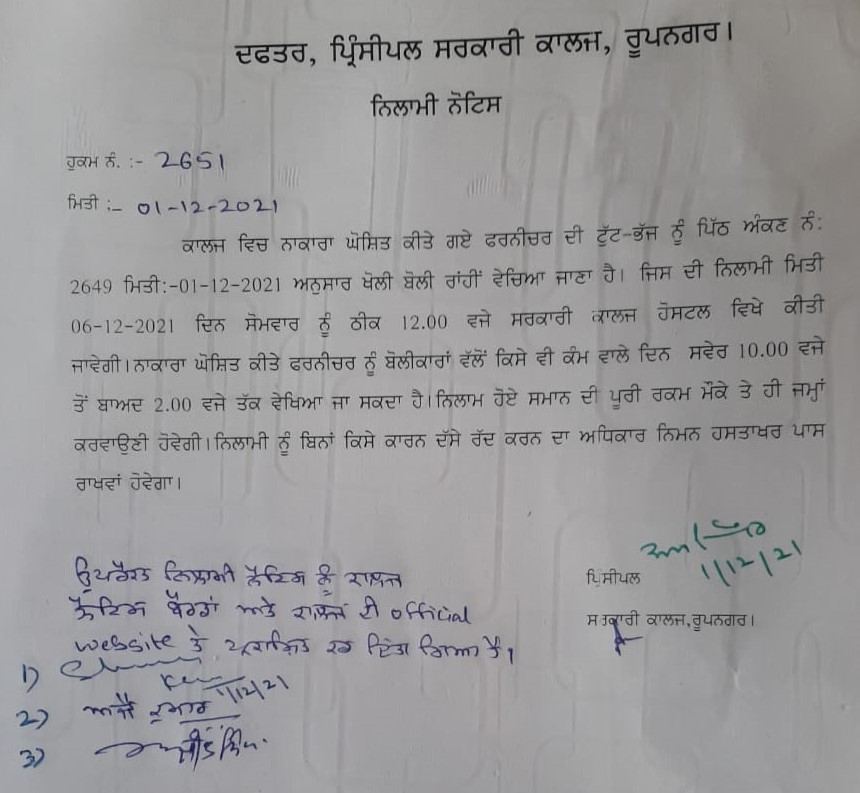 ਦਫਤਰ, ਪ੍ਰਿੰਸੀਪਲ ਸਰਕਾਰੀ ਕਾਲਜ, ਰੂਪਨਗਰ।
ਨਿਲਾਮੀ ਨੋਟਿਸ
ਹੁਕਮ ਨੰ. :- 2651
ਮਿਤੀ :- 01-12-2021
ਕਾਲਜ ਵਿਚ ਨਾਕਾਰਾ ਘੋਸ਼ਿਤ ਕੀਤੇ ਗਏ ਫਰਨੀਚਰ ਦੀ ਟੁੱਟ-ਭੱਜ ਨੂੰ ਪਿੱਠ ਅੰਕਣ ਨੰ:
2649 ਮਿਤੀ:-01-12-2021 ਅਨੁਸਾਰ ਖੋਲੀ ਬੋਲੀ ਰਾਂਹੀਂ ਵੇਚਿਆ ਜਾਣਾ ਹੈ। ਜਿਸ ਦੀ ਨਿਲਾਮੀ ਮਿਤੀ
06-12-2021 ਦਿਨ ਸੋਮਵਾਰ ਨੂੰ ਠੀਕ 12.00 ਵਜੇ ਸਰਕਾਰੀ ਕਾਲਜ ਹੋਸਟਲ ਵਿਖੇ ਕੀਤੀ
ਜਾਵੇਗੀ।ਨਾਕਾਰਾ ਘੋਸ਼ਿਤ ਕੀਤੇ ਫਰਨੀਚਰ ਨੂੰ ਬੋਲੀਕਾਰਾਂ ਵੱਲੋਂ ਕਿਸੇ ਵੀ ਕੰਮ ਵਾਲੇ ਦਿਨ ਸਵੇਰ 10.00 ਵਜੇ
ਤੋਂ ਬਾਅਦ 2.00 ਵਜੇ ਤੱਕ ਵੇਖਿਆ ਜਾ ਸਕਦਾ ਹੈ।ਨਿਲਾਮ ਹੋਏ ਸਮਾਨ ਦੀ ਪੂਰੀ ਰਕਮ ਮੌਕੇ ਤੇ ਹੀ ਜਮ੍ਹਾਂ
ਕਰਵਾਉਣੀ ਹੋਵੇਗੀ।ਨਿਲਾਮੀ ਨੂੰ ਬਿਨਾਂ ਕਿਸੇ ਕਾਰਨ ਦੱਸੇ ਰੱਦ ਕਰਨ ਦਾ ਅਧਿਕਾਰ ਨਿਮਨ ਹਸਤਾਖਰ ਪਾਸ
ਰਾਖਵਾਂ ਹੋਵੇਗਾ।
1/12/21
ਪ੍ਰਿੰਸੀਪਲ
ਸਰਕਾਰੀ ਕਾਲਜ,ਰੂਪਨਗਰ।
ਉਪਰੋਕਤ ਨਿਲਾਮੀ ਨੋਟਿਸ ਨੂੰ ਕਾਲਜ
ਨੋਟਿਸ ਬੋਰਡਾਂ ਅਤੇ ਕਾਲਜ ਦੀ official
website ਤੇ ਪ੍ਰਕਾਸ਼ਿਤ ਕਰ ਦਿੱਤਾ ਗਿਆ ਹੈ।
1)
1/12/21
2) ਅਜੈ ਕੁਮਾਰ
3)